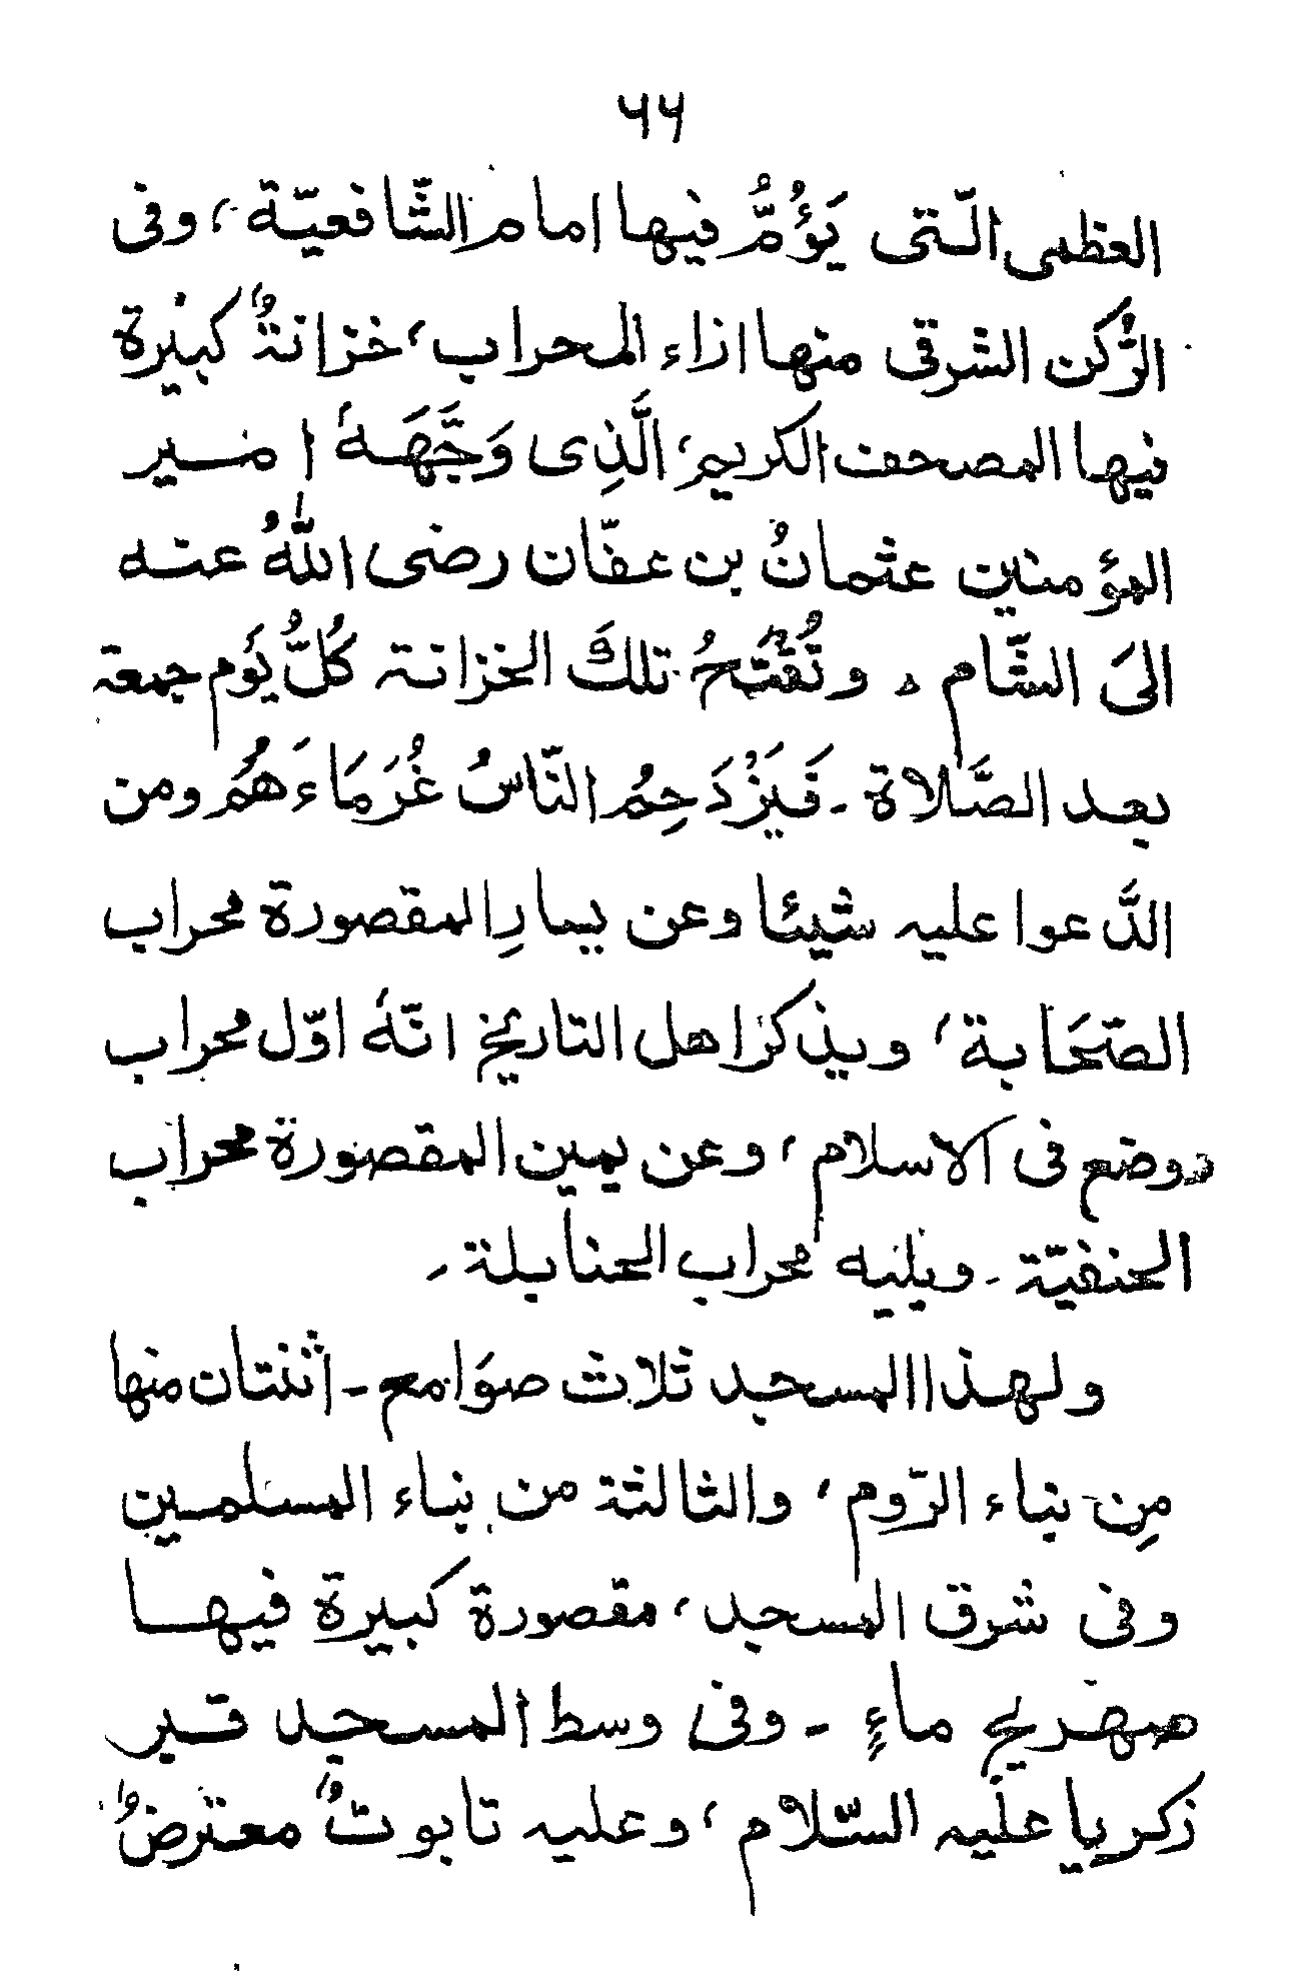 ۶۶
العظمى الّتى يَؤُمُّ فيها امام الشّافعيّة ، وفى
الرُّكن الشرقى منها ازاء المحراب ، خزانةٌ كبيرة
فيها المصحف الكريم ، الَّذِى وَجَّهَهٗ امير
المؤمنين عثمانُ بن عفّان رضى اللهُ عنه
الىَ الشّام ، وتُفْتَحُ تلكَ الخزانة كُلُّ يَوم جمعة
بعد الصَّلاة - فَيَزْدَحِمُ النّاسُ غُرَمَاءَهُمْ ومن
الدَّعوا عليه شيئا وعن يسارِ المقصورة محراب
الصّحَابة ، ويذكر اهل التاريخ انّهٗ اوّل محراب
وضع فى الاسلام ، وعن يمين المقصورة محراب
الحنفيّة - ويليه محراب الحنابلة -
ولهذا المسجد ثلاث صوَامع - اثنتان منها
مِن بناء الرّوم ، والثالثة من بناء المسلمين
وفى شرق المسجد ، مقصورة كبيرة فيها
صهريج ماءٍ - وفى وسط المسجد قبر
زكريا علَيه السّلام ، وعليه تابوتٌ معترضٌ